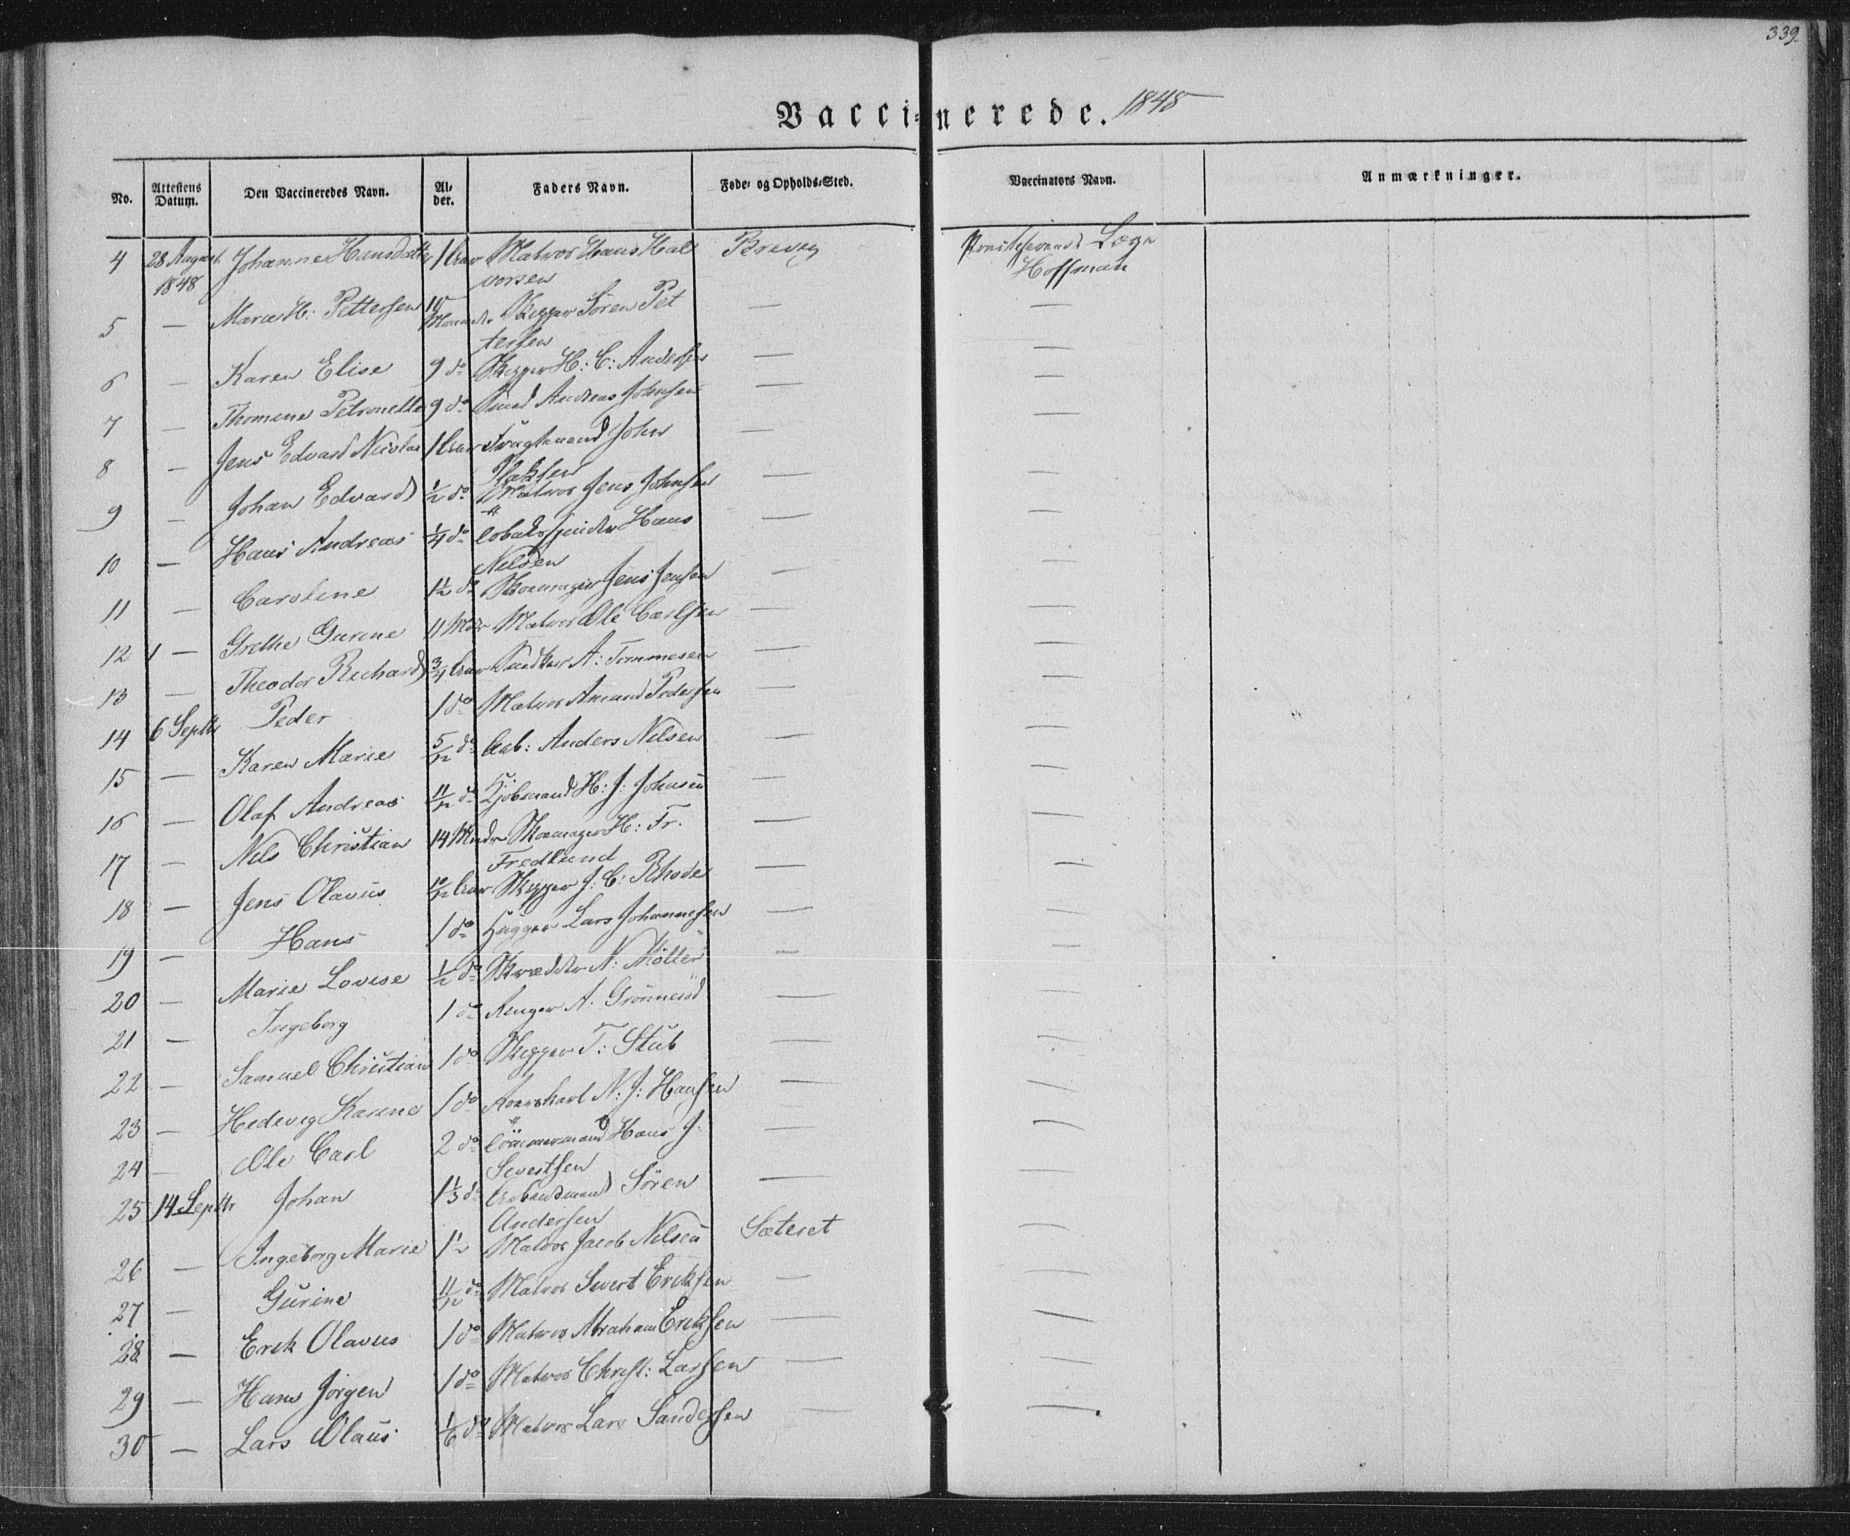 339.
Vaccinerede. 1848
No. Attestens Datum. Den Vaccineredes Navn. Alder. Faders Navn. Føde- og Opholds-Sted. Vaccinators Navn. Anmærkninger.
4 28 August 1848 Johanne Hansdatter 1 Aar Matros Hans Halvorsen Brevig Læge Hoffman
5 — Maren H: Pettersen 10 Maaneder Skipper Sören Pettersen — —
6 — Karen Elise 9 do Skipper H: C: Andersen — —
7 — Thomine Petronelle 9 do Smed Andreas Johnsen — —
8 — Jens Edvard Nicolai 1 Aar Fragtemand John Isaksen — —
9 — Johan Edvard 1/2 do Matros Jens Johnsen — —
10 — Hans Andreas 1/4 do Tobaksspinder Hans Nilsen — —
11 — Caroline 1 1/2 do Skomager Jens Jensen — —
12 1 — Grethe Gurine 11 Mdr Matros Ole Carlsen — —
13 — Theodor Richard 3/4 Aar Snedker A: Tommesen — —
14 6 Septbr Peder 1 do Matros Amund Pedersen — —
15 — Karen Marie 5/12 do Arb: Anders Nilsen — —
16 — Olaf Andreas 11/12 do Kjöbmand H: J: Johnsen — —
17 — Nils Christian 14 Mndr Skomager H: Fr. Fredlund — —
18 — Jens Olavus 10/12 Aar Skipper J: C: Rhode — —
19 — Hans 1 do Hugger Lars Johannesen — —
20 — Marie Lovise 1/2 do Skrædder N: Möller — —
21 — Ingeborg 1 do A: Grönneröd — —
22 — Samuel Christian 1 do Skipper T: Stub — —
23 — Hedevig Karine 1 do N: J: Hansen — —
24 — Ole Carl 2 do Tömmermand Hans J. Severtsen — —
25 14 Septbr Johan 1 1/3 do Arbeidsmand Sören Andersen — —
26 — Ingeborg Marie 1 1/2 Matros Jacob Nilsen Sæteret —
27 — Gurine 11/12 do Matros Sivert Eriksen — —
28 — Erik Olavus 1 do Matros Abraham Eriksen — —
29 — Hans Jörgen 1 do Matros Christ: Larsen — —
30 — Lars Olaus 1/6 do Matros Lars Sandersen — —